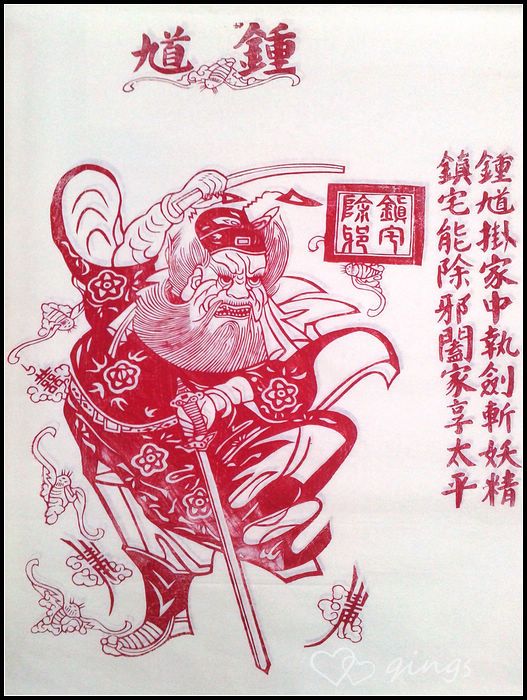 鍾馗
鎮宅
除邪
鍾馗掛家中執劍斬妖精
鎮宅能除邪闔家享太平
qings